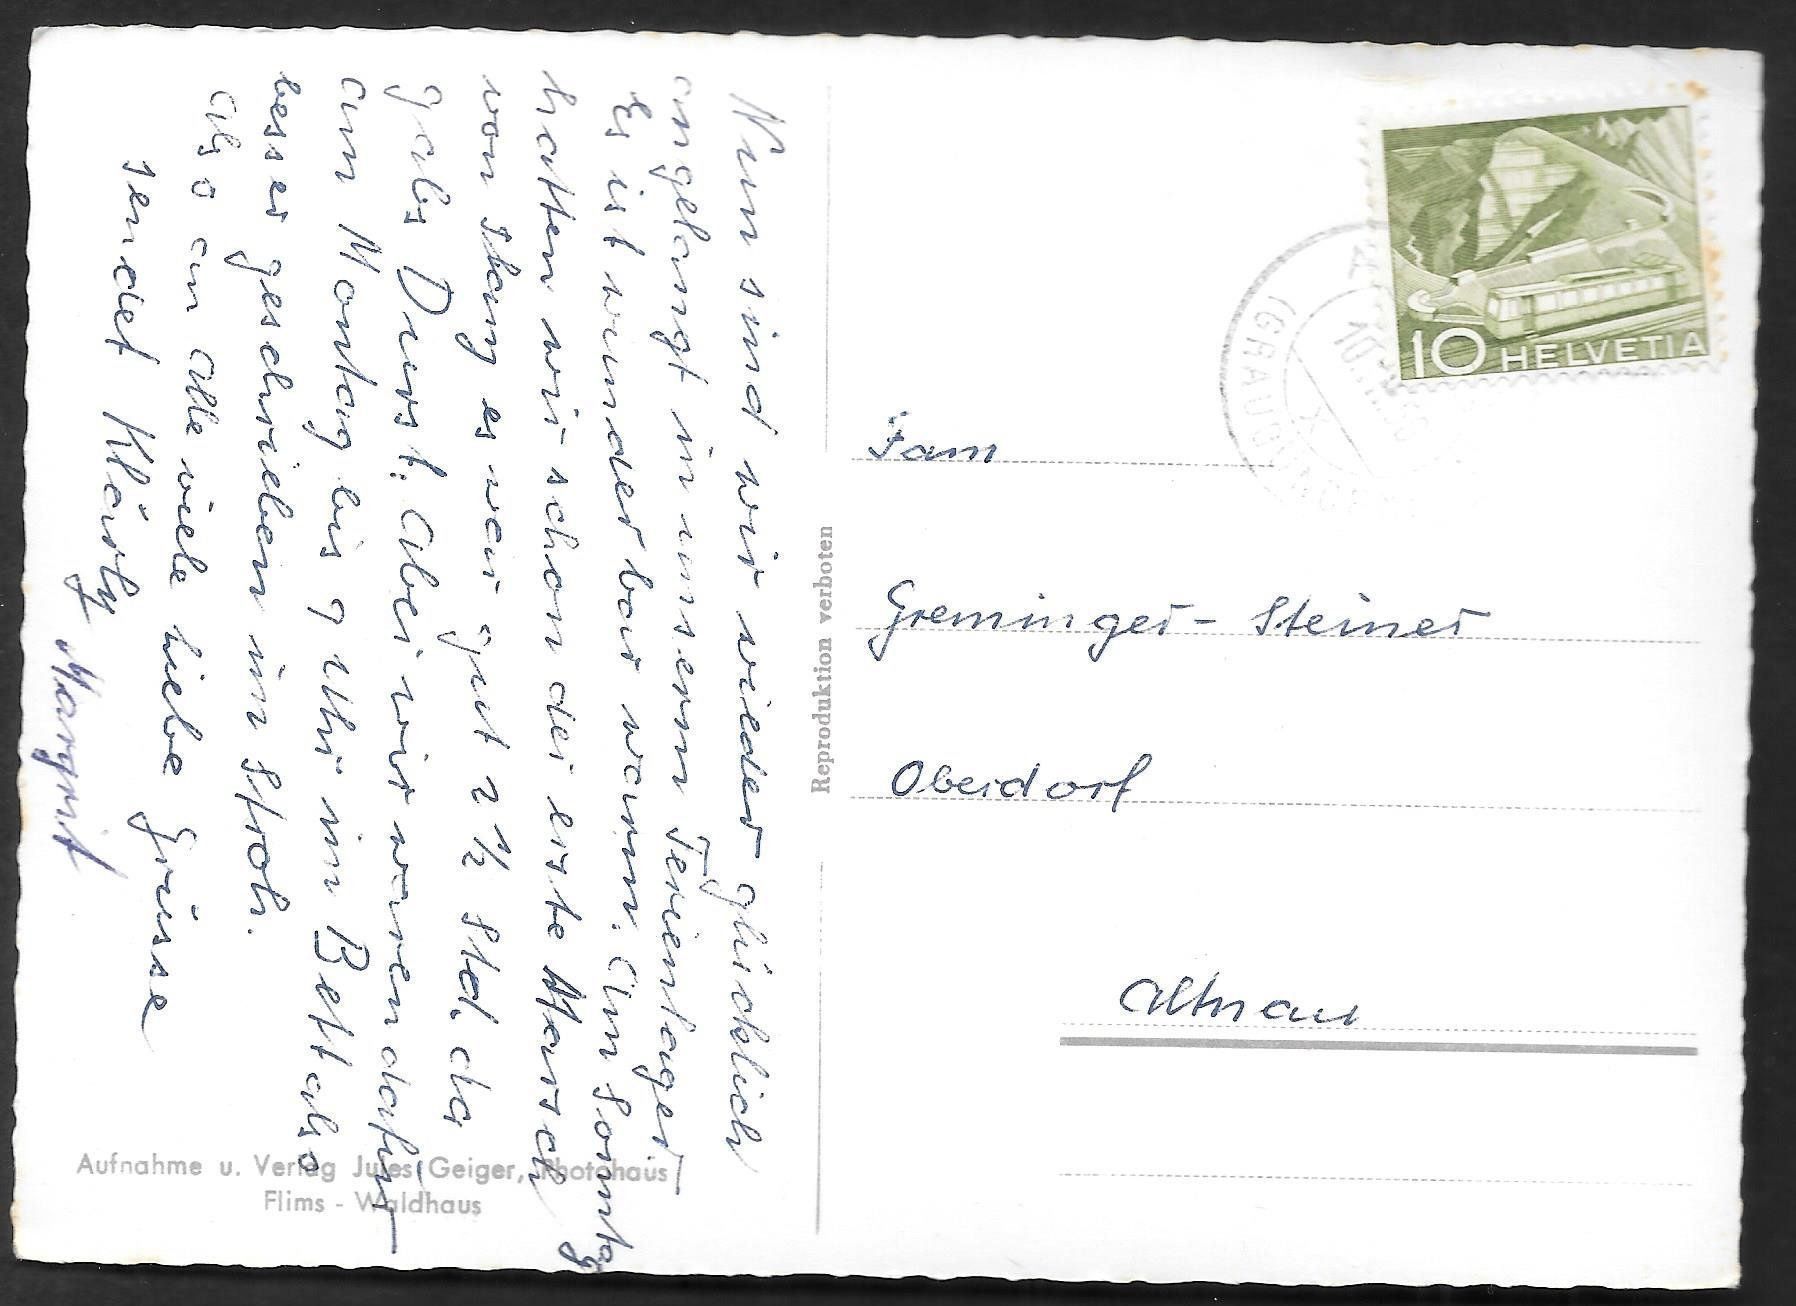 Nun sind wir wieder glücklich
angelangt in unserm Ferienlager
Es ist wunderbar warm. Am Sonntg
hatten wir schon der erste Marsch
von Stang es war gut 2 ½ Std. da
gabs Durst. Aber wir waren dafür
am Montag bis 9 Uhr im Bett also
besser geschrieben im Stroh.
Also an alle viele liebe Grüsse
sendet Klärly
Margrit
Aufnahme u. Verlag Jules Geiger, Photohaus
Flims - Waldhaus
Reproduktion verboten
10 HELVETIA
(GRAUB
Fam
Greminger- Steiner
Oberdorf
Altnau